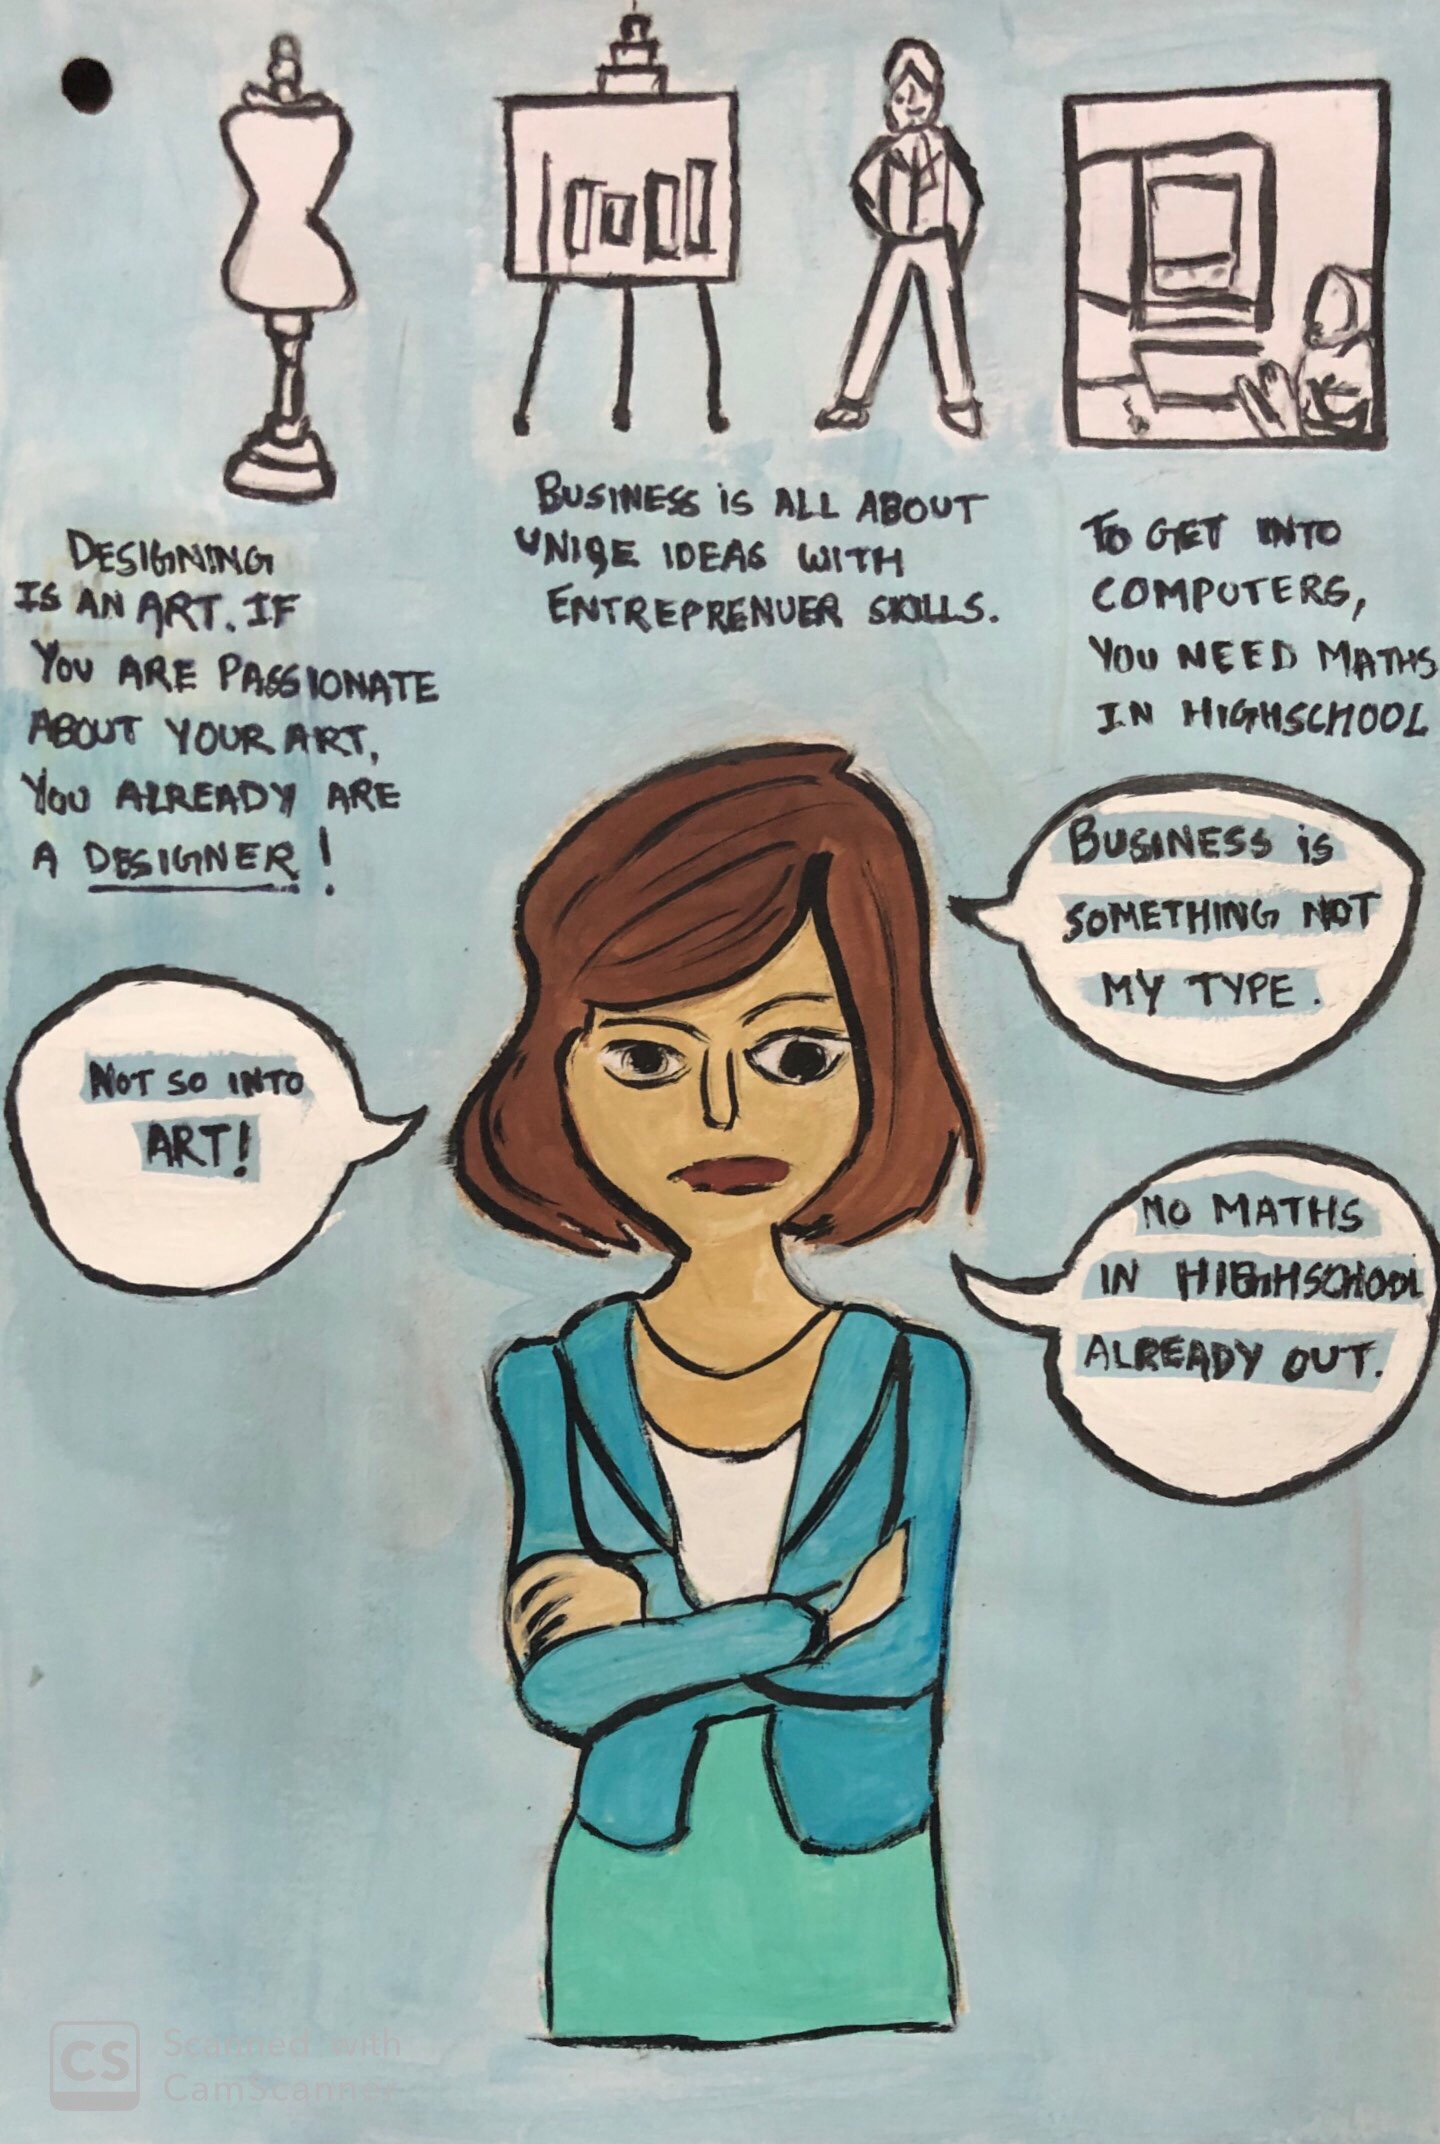 DESIGNING
IS AN ART. IF
YOU ARE PASSIONATE
ABOUT YOUR ART,
YOU ALREADY ARE
A DESIGNER!
BUSINESS is ALL ABOUT
UNIQE IDEAS WITH
ENTREPRENUER SKILLS.
TO GET INTO
COMPUTERS,
YOU NEED MATHS
IN HIGHSCHOOL
NOT SO INTO
ART!
BUSINESS is
SOMETHING NOT
MY TYPE.
NO MATHS
IN HIGHSCHOOL
ALREADY OUT.
CS Scanned with
CamScanner